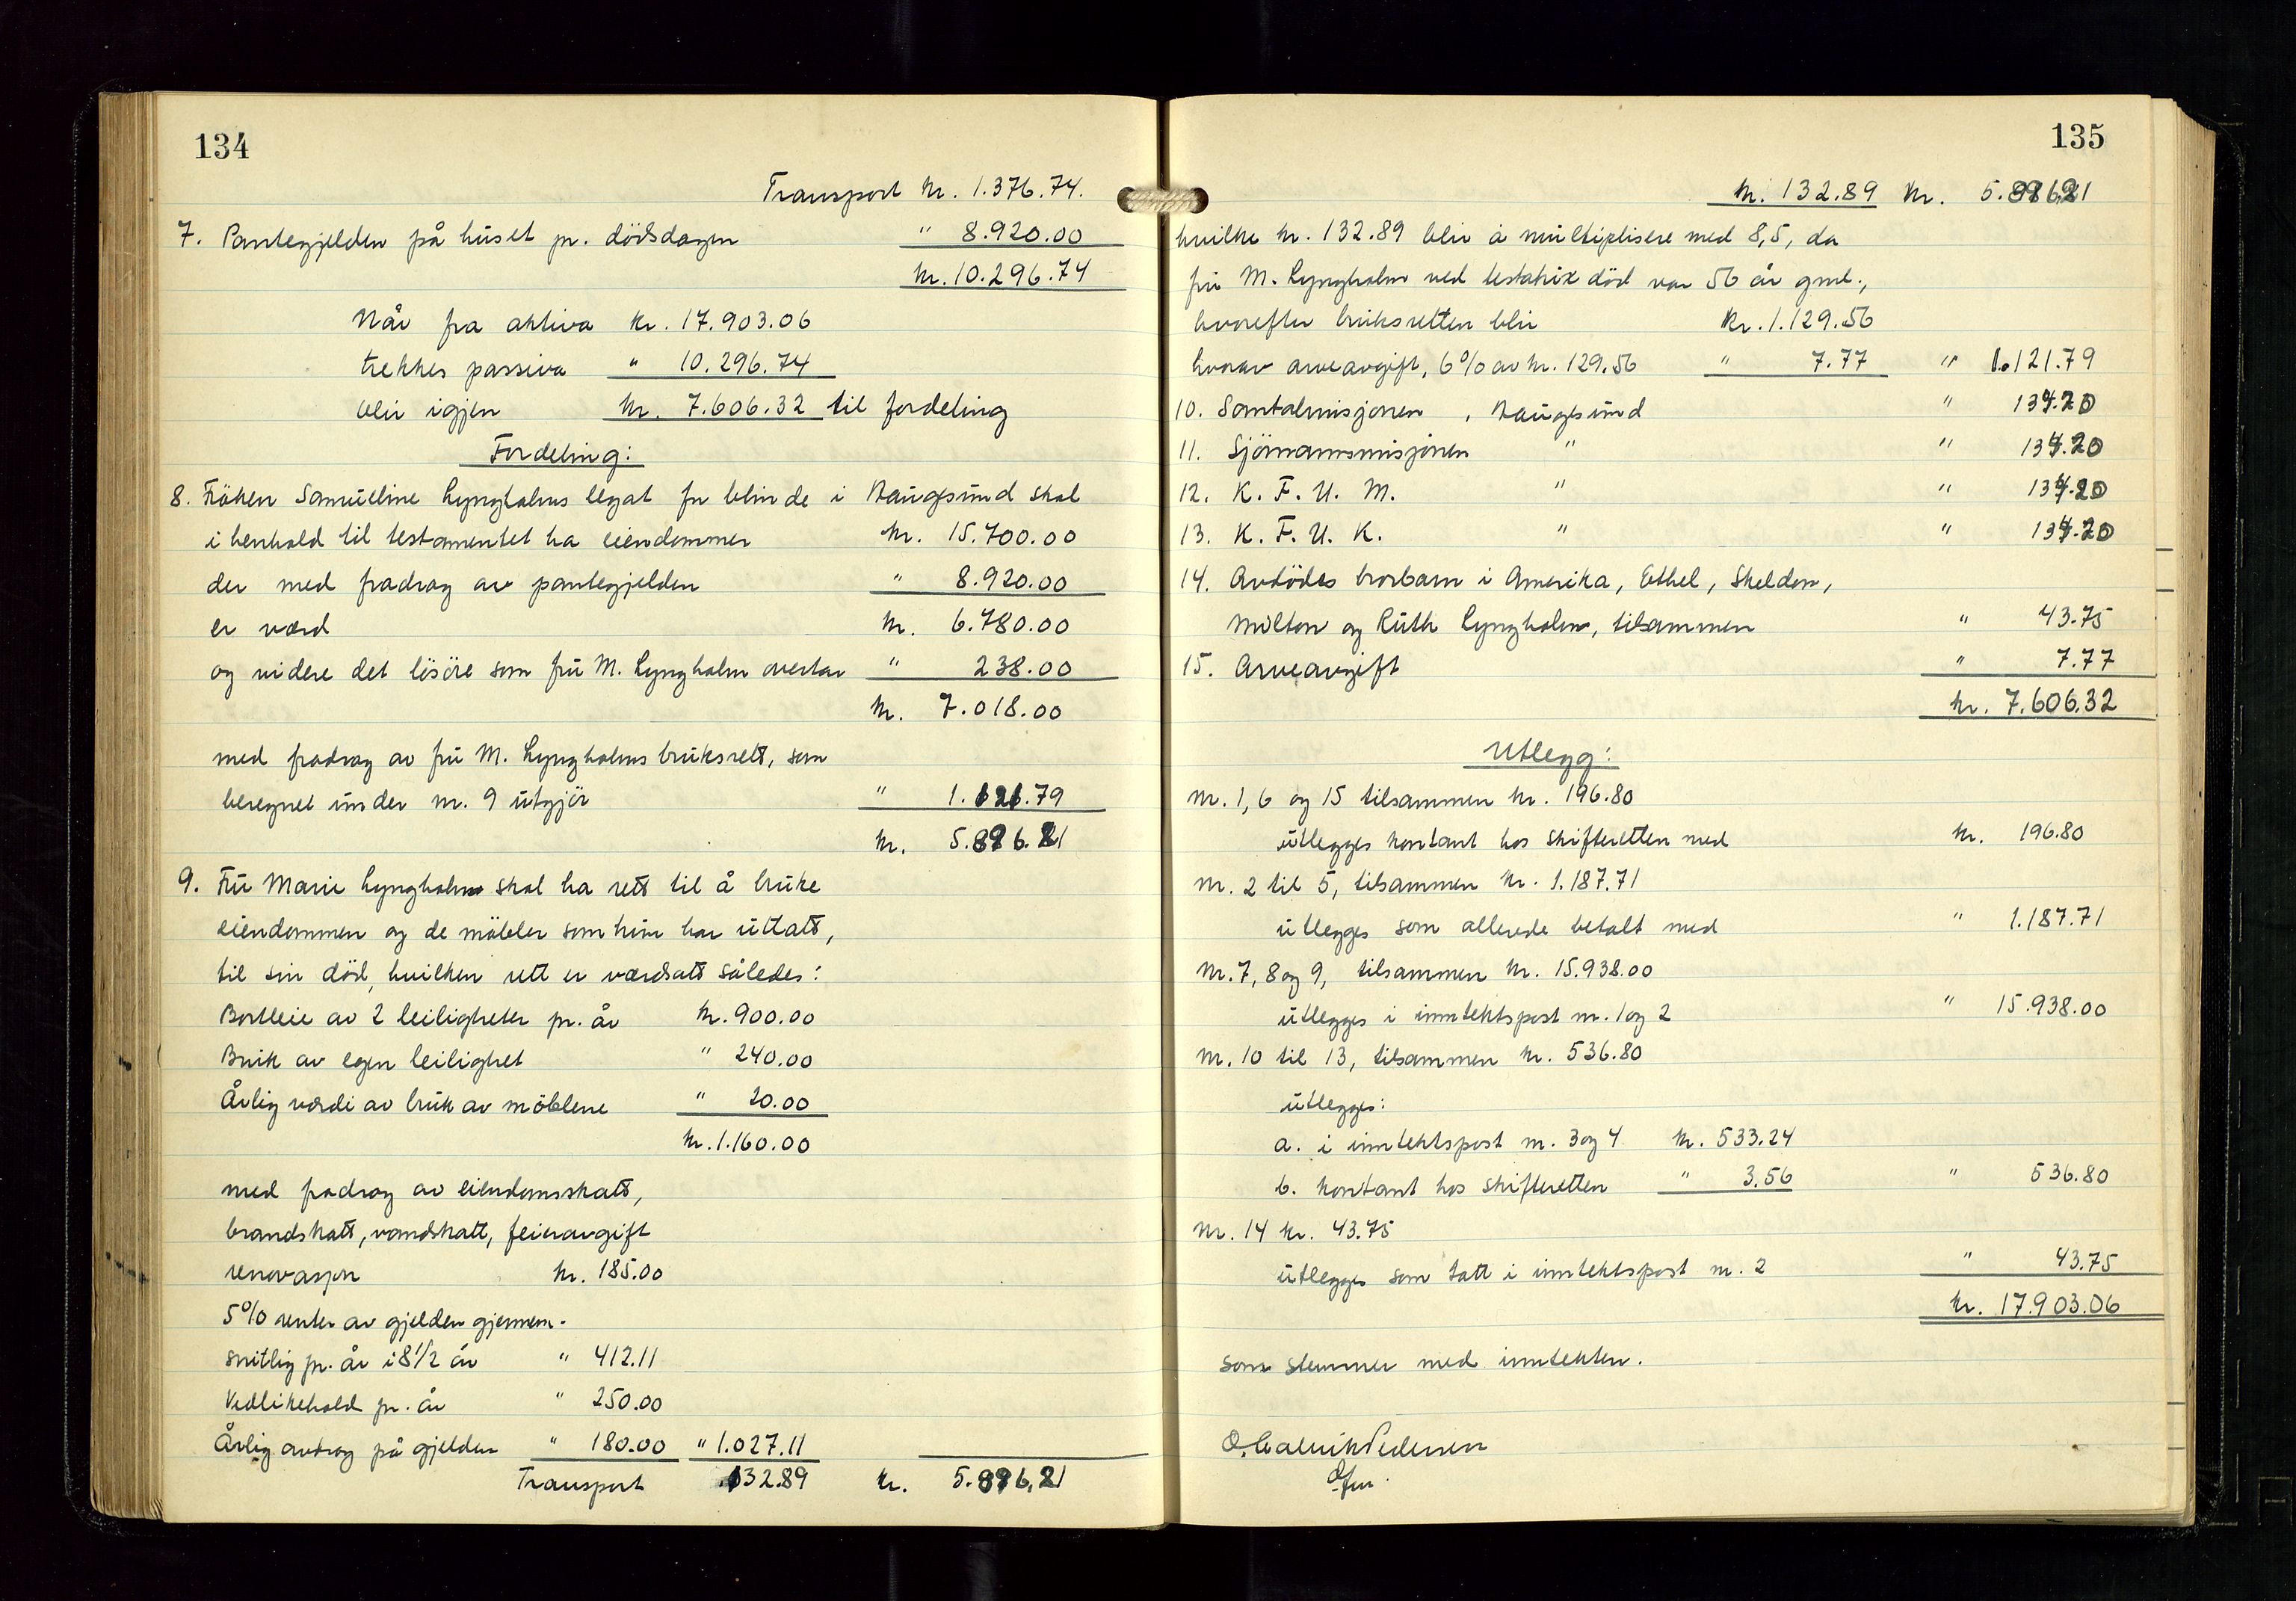 134
Transport kr. 1.376.74.
7. Pantegjelden på huset pr. dödsdagen " 8.920.00
kr. 10.296.74
Når fra aktiva kr. 17.903.06
trekkes passiva " 10.296.74
blir igjen kr. 7.606.32 til fordeling
Fordeling:
8. Fröken Samueline Lyngholms legat for blinde i Haugesund skal
i henhold til testamentet ha eiendommen kr. 15.700.00
der med fradrag av pantegjelden " 8.920.00
er værd kr. 6.780.00
og videre det lösöre som fru M. Lyngholm overtar " 238.00
kr. 7.018.00
med fradrag av fru M. Lyngholms bruksrett, som
beregnet under nr. 9 utgjör " 1.121.79
kr. 5.896.21
9. Fru Marie Lyngholm skal ha rett til å bruke
eiendommen og de möbler som hun har uttatt,
til sin död, hvilken rett er værdsatt således:
Bortleie av 2 leiligheter pr. år kr. 900.00
Bruk av egen leilighet " 240.00
Årlig verdi av bruk av möblene " 20.00
kr. 1.160.00
med fradrag av eiendomsskatt,
brandskatt, vandskatt, feieravgift
renovasjon kr. 185.00
5% renter av gjelden gjennem-
snitlig pr. år i 8 1/2 år " 412.11
Vedlikehold pr. år " 250.00
Årlig avdrag på gjelden " 180.00 " 1.027.11
Transport 132.89 kr. 5.896.21
135
kr. 132.89 kr. 5.896.21
hvilke kr. 132.89 blir å multiplisere med 8,5, da
fru M. Lyngholm ved testatrix död var 56 år gml.,
hvorefter bruksretten blir kr. 1.129.56
hvorav arveavgift, 6% av kr. 129.56 " 7.77 " 1.121.79
10. Santalmisjonen, Haugesund " 134.20
11. Sjömannsmisjonen " " 134.20
12. K. F. U. M. " " 134.20
13. K. F. U. K. " " 134.20
14. Avdödes brorbarn i Amerika, Ethel, Sheldon,
Milton og Ruth Lyngholm, tilsammen " 43.75
15. Arveavgift " 7.77
kr. 7.606.32
Utlegg:
Nr. 1, 6 og 15 tilsammen kr. 196.80
utlegges kontant hos skifteretten med kr. 196.80
Nr. 2 til 5, tilsammen kr. 1.187.71
utlegges som allerede betalt med " 1.187.71
Nr. 7, 8 og 9, tilsammen kr. 15.938.00
utlegges i inntektspost nr. 1 og 2 " 15.938.00
Nr. 10 til 13, tilsammen kr. 536.80
utlegges:
a. i inntektspost nr. 3 og 4 kr. 533.24
b. kontant hos skifteretten " 3.56 " 536.80
Nr. 14 kr. 43.75
utlegges som tatt i inntektspost nr. 2 " 43.75
kr. 17.903.06
som stemmer med inntekten.
Pedersen